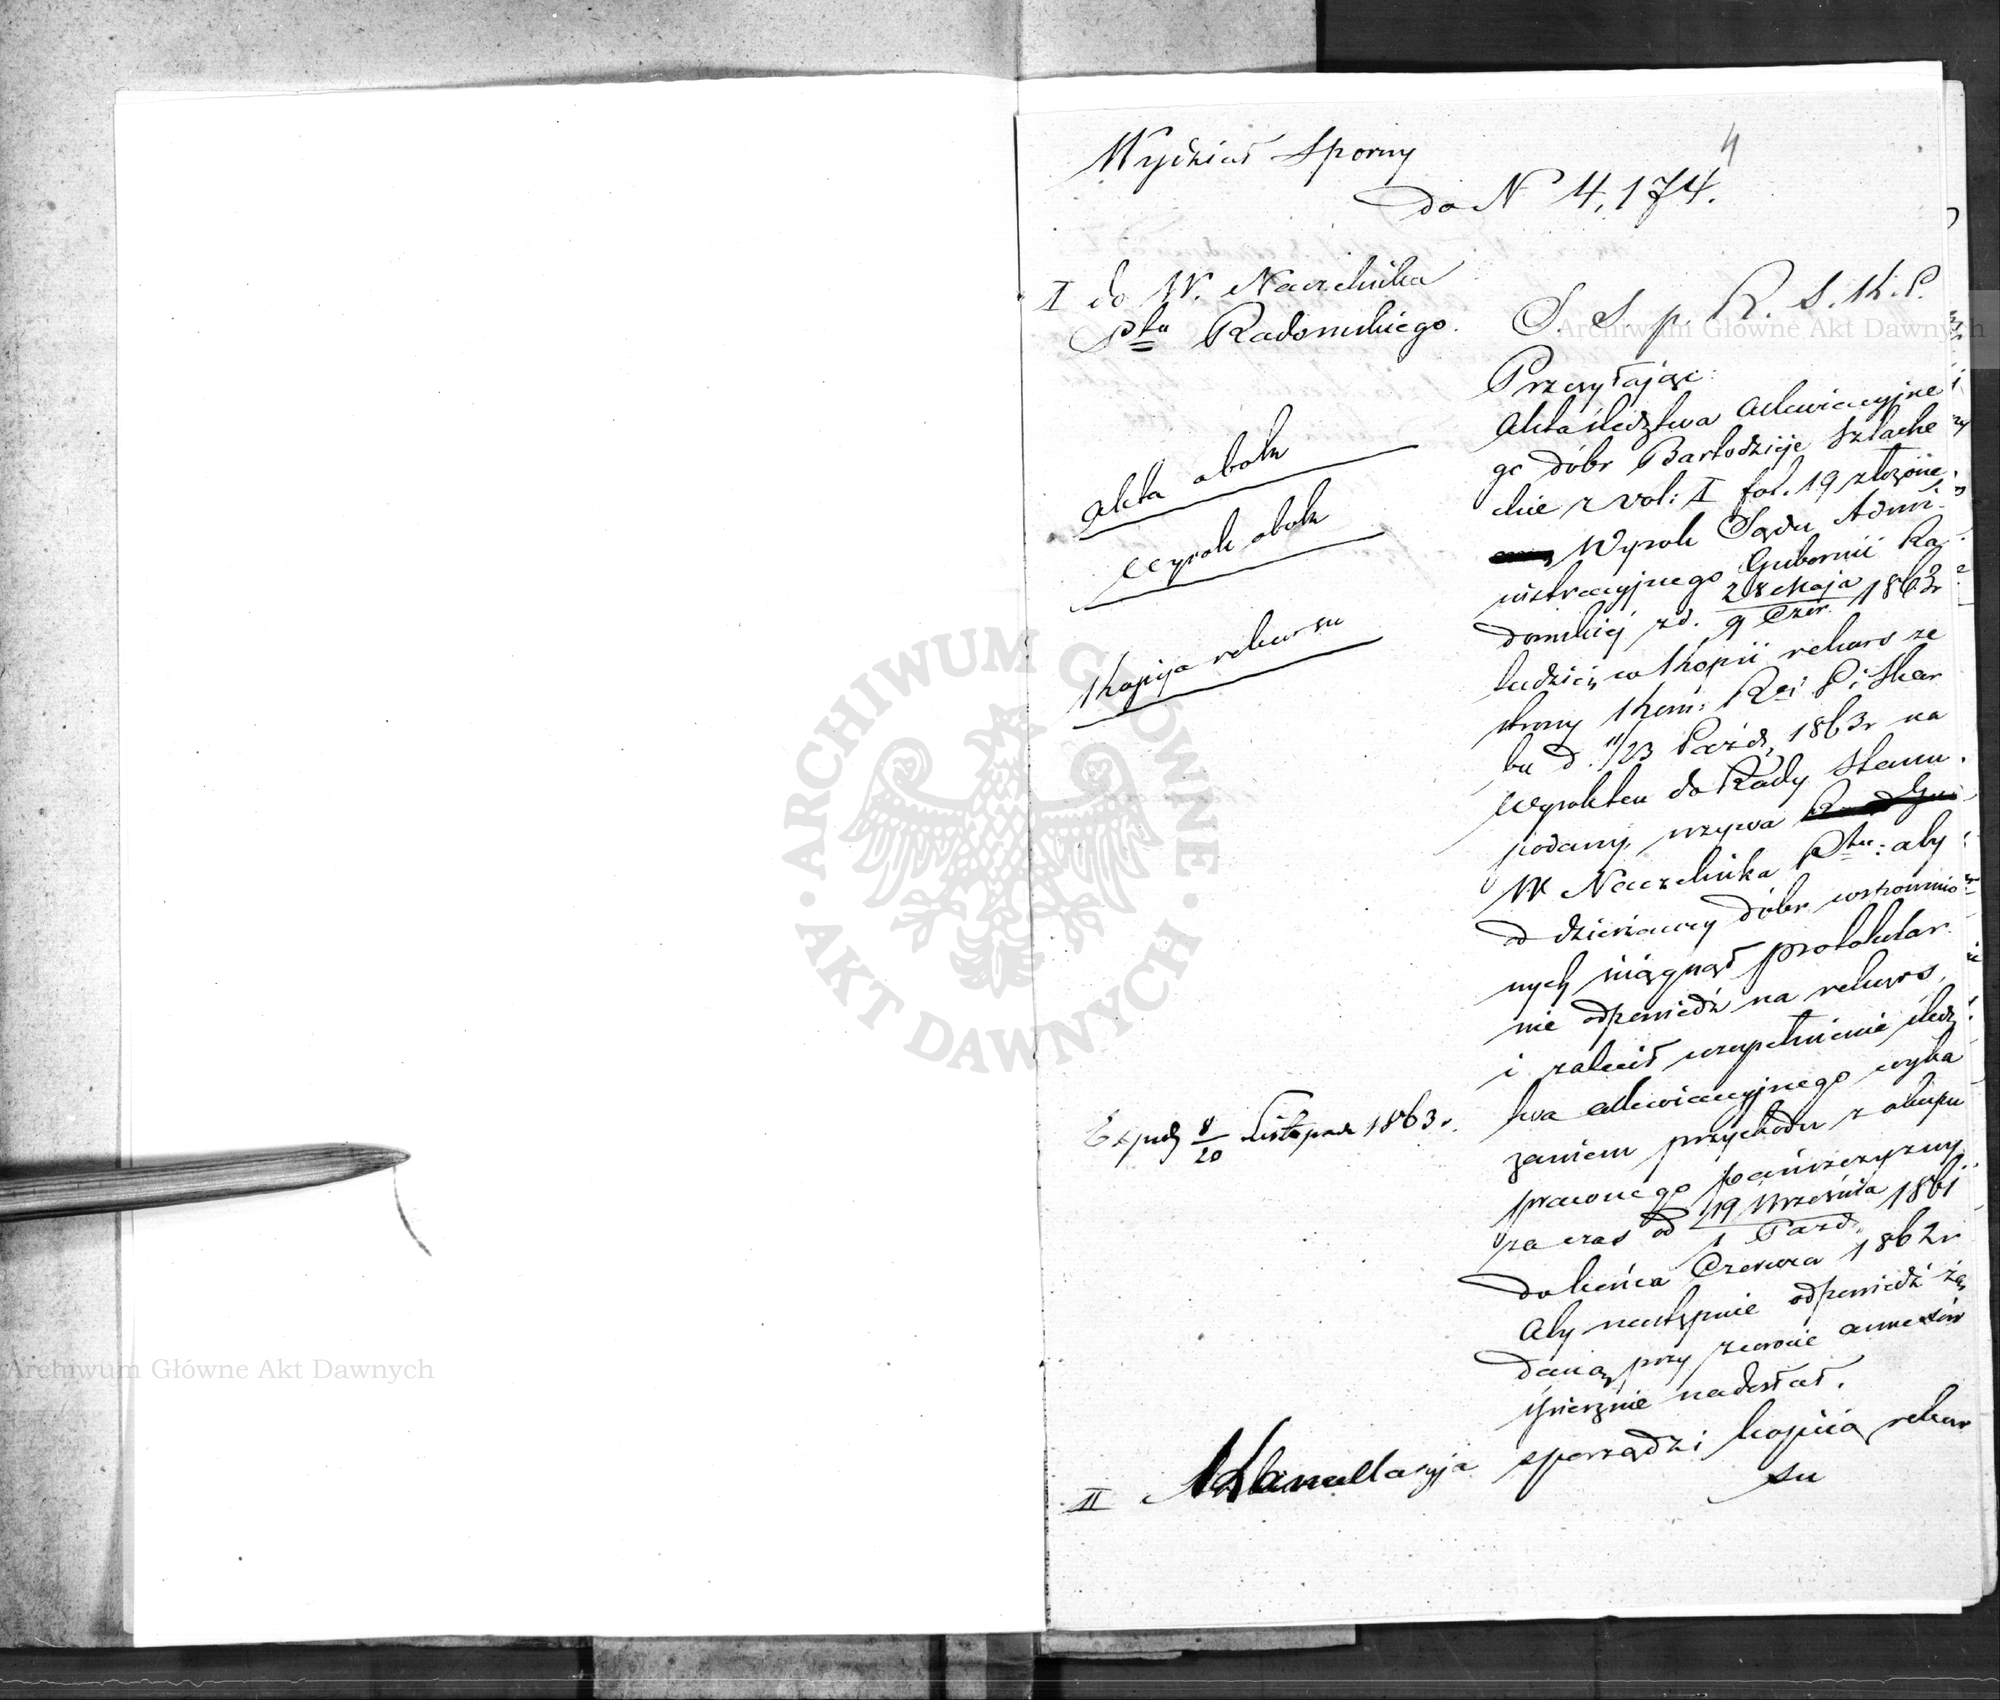 4
Wydział Sporny
do N 4,174.
I do W. Naczelnika
Ptu Radomskiego.
S. S. p. R. S. K. P.
Przesyłając:
Akta śledztwa adewiacyjne
go dóbr Bartodzieje Szlache
ckie z vol: I fol. 19 złożone
Wyrok Sądu Admi-
nistracyjnego Gubernii Ra-
domskiej z d. 28 Maja / 9 Czer. 1863r
tudzież w kopii rekurs ze
strony Kom: R P. i Skar
bu d. 11/23 Paźdz. 1863r na
wyrok ten do Rady Stanu
podany, wzywa
W Naczelnika Ptu: aby
od dzierżawcy dóbr wspomnio
nych ściągnął protokular
nie odpowiedź na rekurs,
i zalecił uzupełnienie śledz
twa adewiacyjnego wyka
zaniem przychodu z okupu
prawnego pańszczyzny
za czas od 19 Września / 1 Paźd. 1861
do końca Czerwca 1862r
Aby następnie odpowiedź żą
daną przy zwrocie annexów
śpiesznie nadesłał.
akta obok
wyrok obok
Kopija rekursu
Exped 8/20 Listopada 1863r.
II Kancellaryja sporządzi kopiią rekur
su
ARCHIWUM GŁÓWNE AKT DAWNYCH
Archiwum Główne Akt Dawnych
Archiwum Główne Akt Dawnych